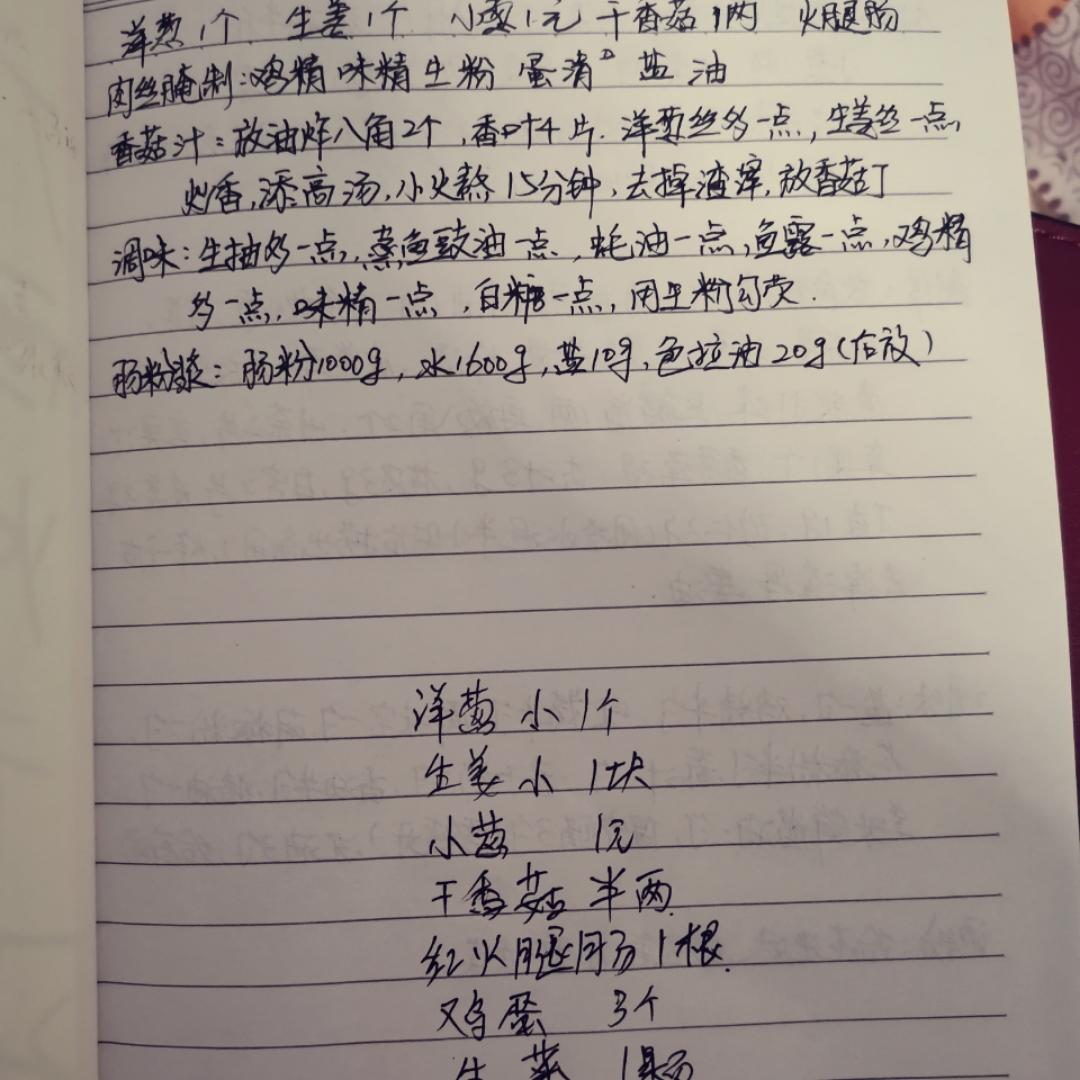 洋葱1个 生姜1个 小葱1元 干香菇1两 火腿肠
肉丝腌制:鸡精 味精 生粉 蛋清 盐 油
香菇汁:放油炸八角2个,香叶4片.洋葱丝多一点,生姜丝一点,
炒香,添高汤,小火熬15分钟,去掉渣滓,放香菇丁
调味:生抽多一点,蒸鱼豉油一点,蚝油一点,鱼露一点,鸡精
多一点,味精一点,白糖一点,用生粉勾芡.
肠粉浆:肠粉1000g,水1600g,盐10g,色拉油20g(后放)
洋葱 小 1个
生姜 小 1块
小葱 1元
干香菇 半两
红火腿肠1根.
鸡蛋 3个
生菜 1